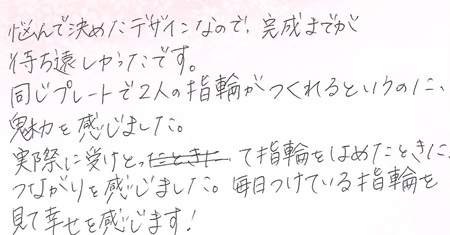 悩んで決めたデザインなので、完成までが
待ち遠しかったです。
同じプレートで2人の指輪がつくれるというのに、
魅力を感じました。
実際に受けとって指輪をはめたときに、
つながりを感じました。毎日つけている指輪を
見て幸せを感じます!